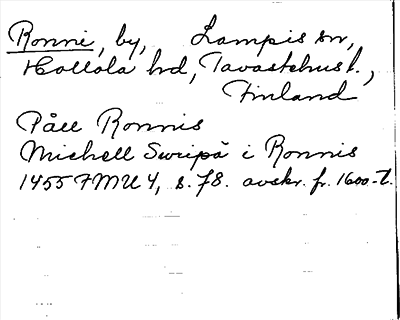 Ronni, by, Lampis sn,
Hollola hd, Tavastehus l.,
Finland
Påll Ronnis
Michell Swripå i Ronnis
1455 FMU 4, s. 78. avskr. fr. 1600-t.